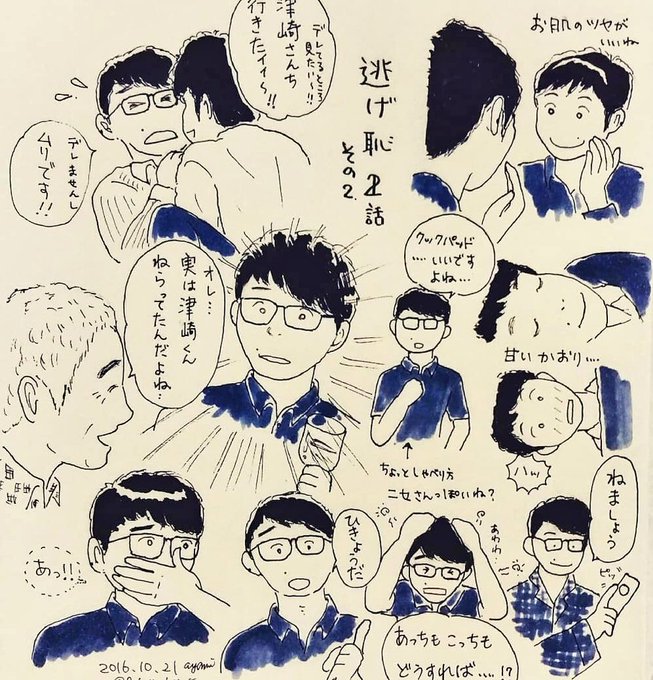 デレてるところ
見たい〜!!
津崎さんち
行きたイィ〜!!
デレませんし
ムリです!!
逃げ恥2話
その2.
お肌のツヤが
いいね
クックパッド
....いいです
よね...
オレ...
実は津崎くん
ねらってたんだよね..
甘いかおり....
ハッ
ちょっとしゃべり方
ニセさんっぽいね?
ねましょう
ピッ
あっ!!
ひきょうだ
あわわ
あっちもこっちも
どうすれば....!?
2016.10.21 ayami